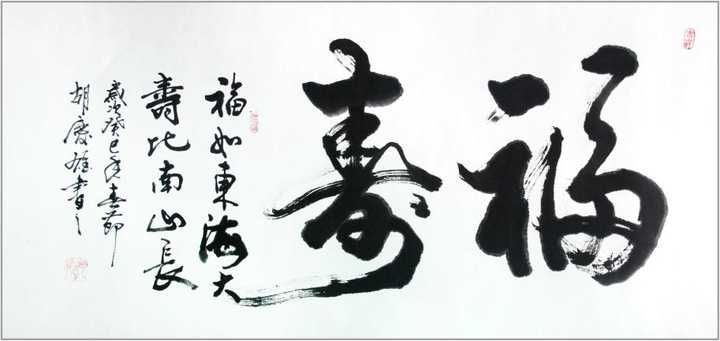 福壽
福如東海大
壽比南山長
歲次癸巳年春節
胡慶雄書之